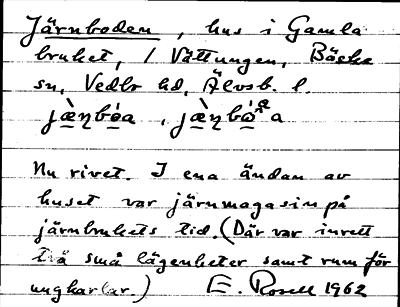 Järnboden, hus i Gamla
bruket, / Vättungen, Bäske
sn, Vedbo hd, Älvsb. l.
Nu rivet. I ena ändan av
huset var järnmagasin på
järnbrukets tid. (Där var inrett
två små lägenheter samt rum för
ungkarlar.) E. Rosell 1962